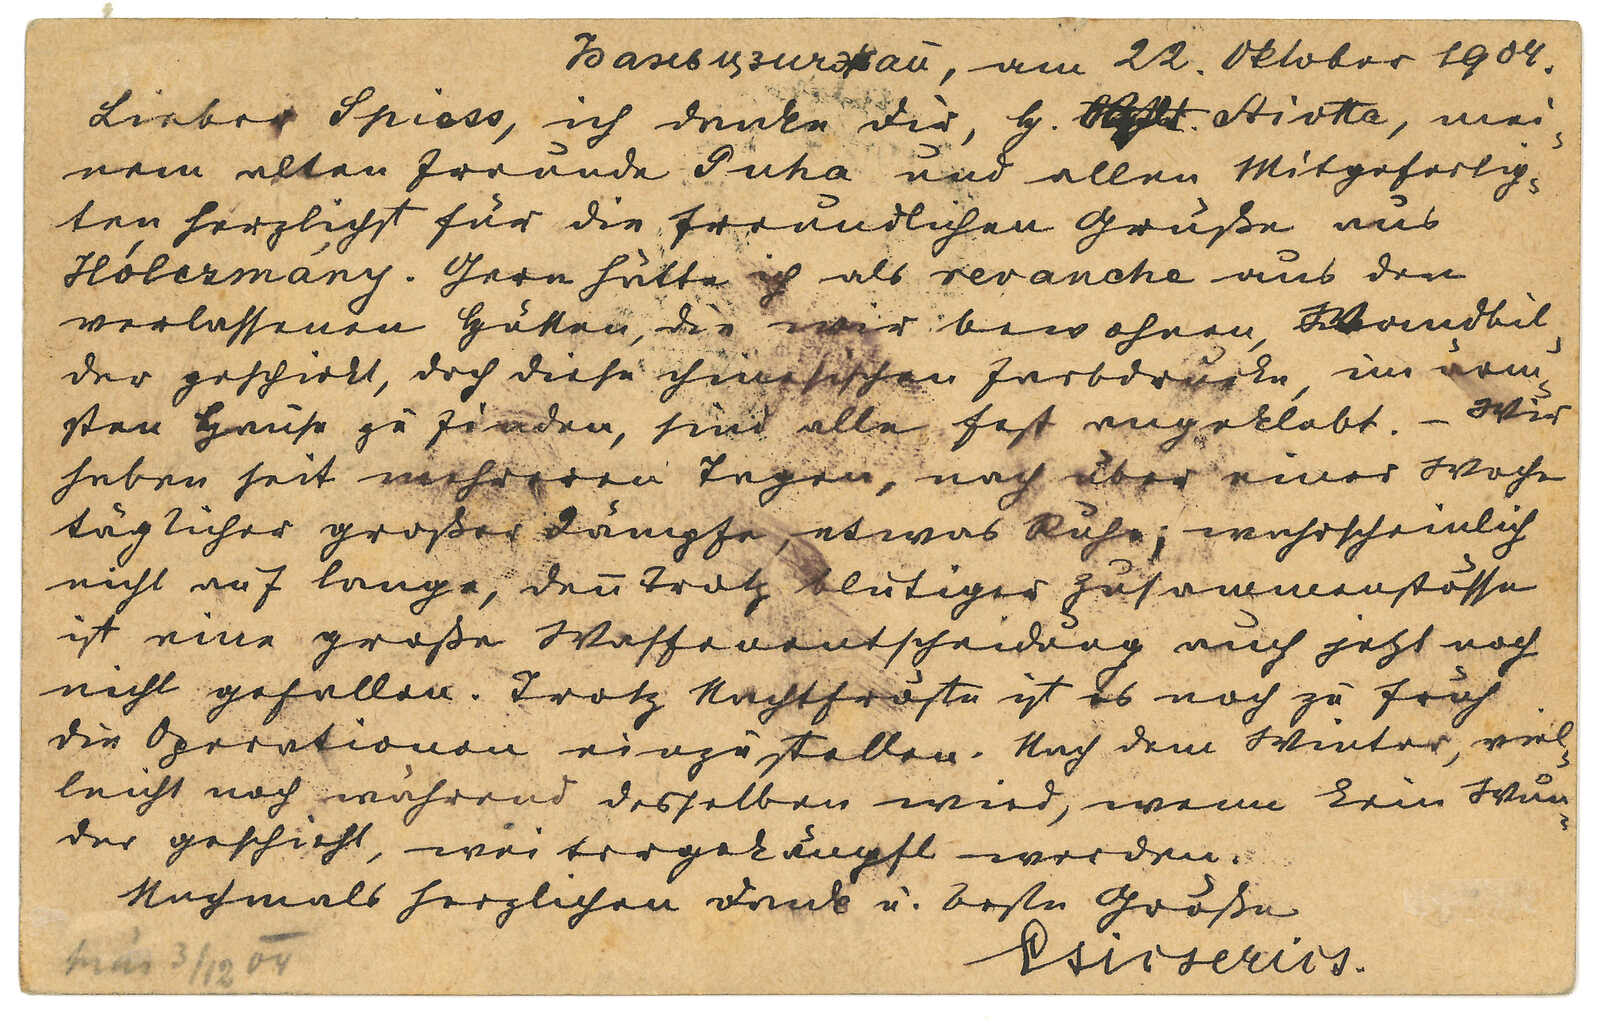 Баньцзичжай, am 22. Oktober 1904.
Lieber Spiess, ich danke Dir, H. Aiotta, mei-
nem alten Freunde Puha und allen Mitgefertig-
ten herzlichst für die freundlichen Grüße aus
Hólczmány. Gern hätte ich als revanche aus den
verlassenen Hütten, die wir bewohnen, Wandbil-
der geschickt, doch diese chinesischen Farbdrucke, im ärm-
sten Hause zu finden, sind alle fest angeklebt. – Wir
haben seit mehreren Tagen, nach über einer Woche
täglicher großer Kämpfe, etwas Ruhe; wahrscheinlich
nicht auf lange, den̄ trotz blutiger Zusammenstösse
ist eine große Waffenentscheidung auch jetzt noch
nicht gefallen. Trotz Nachtfröste ist es noch zu früh
die Operationen einzustellen. Nach dem Winter, viel-
leicht noch während desselben wird, wenn kein Wun-
der geschieht, weitergekämpft werden.
Nochmals herzlichen Dank u. beste Grüße
Csicserics.
3/12 04